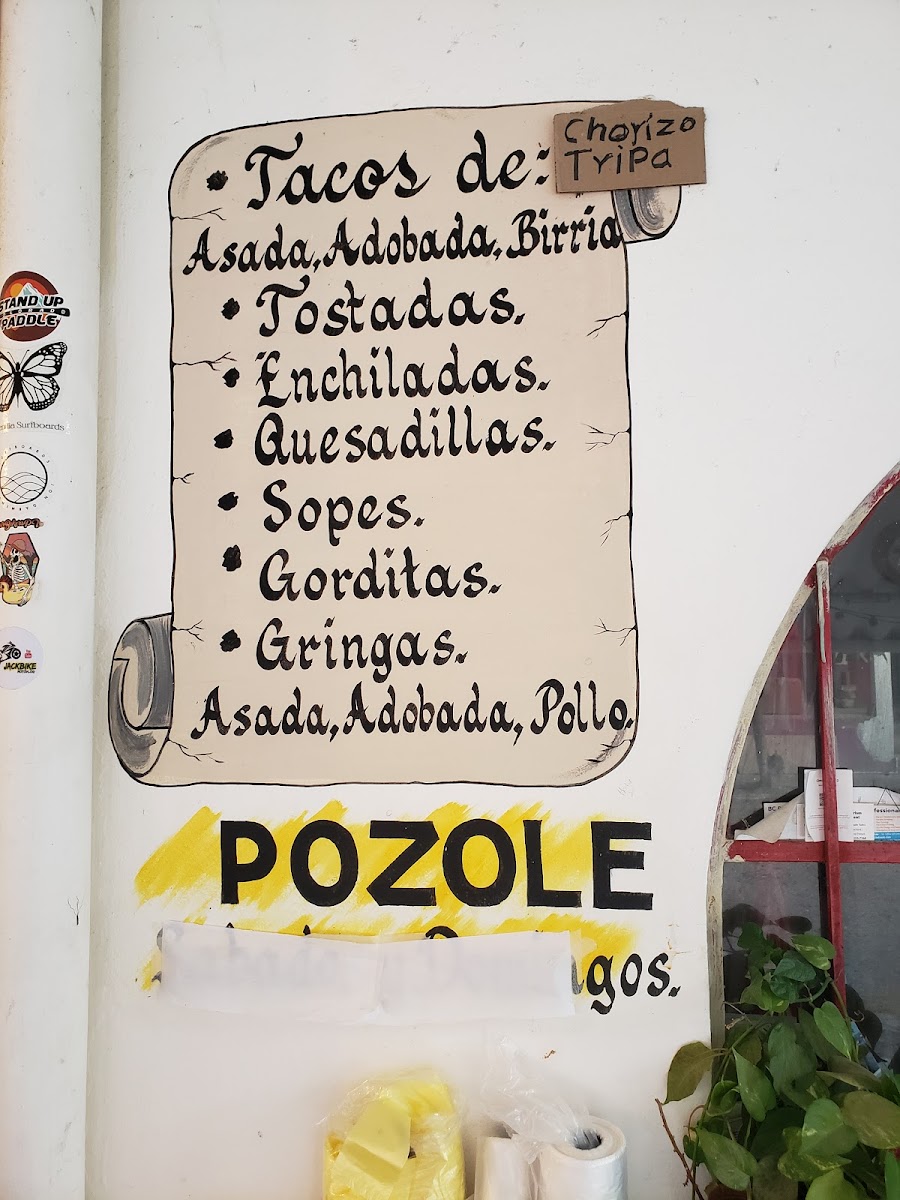 • Tacos de:
Chorizo
Tripa
Asada, Adobada, Birria
• Tostadas.
• Enchiladas.
• Quesadillas.
• Sopes.
• Gorditas.
• Gringas.
Asada, Adobada, Pollo.
POZOLE
STAND UP
COLORADO
PADDLE
Surfboards
JACKBIKE